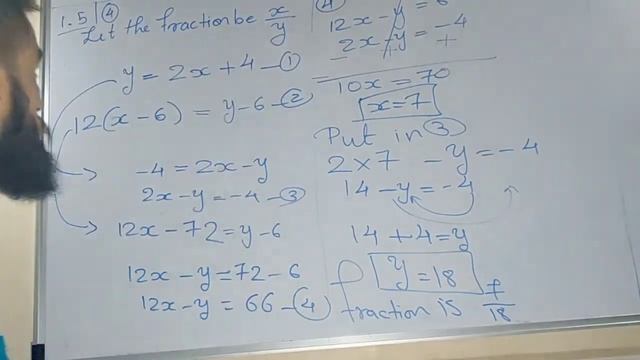 1.5 | ④
Let the fraction be x/y
y = 2x + 4 - ①
12(x - 6) = y - 6 - ②
-4 = 2x - y
2x - y = -4 - ③
12x - 72 = y - 6
12x - y = 72 - 6
12x - y = 66 - ④
④
12x - y = 6
2x - y = -4
- + +
10x = 70
x = 7
Put in ③
2 × 7 - y = -4
14 - y = -4
14 + 4 = y
y = 18
fraction is 7/18